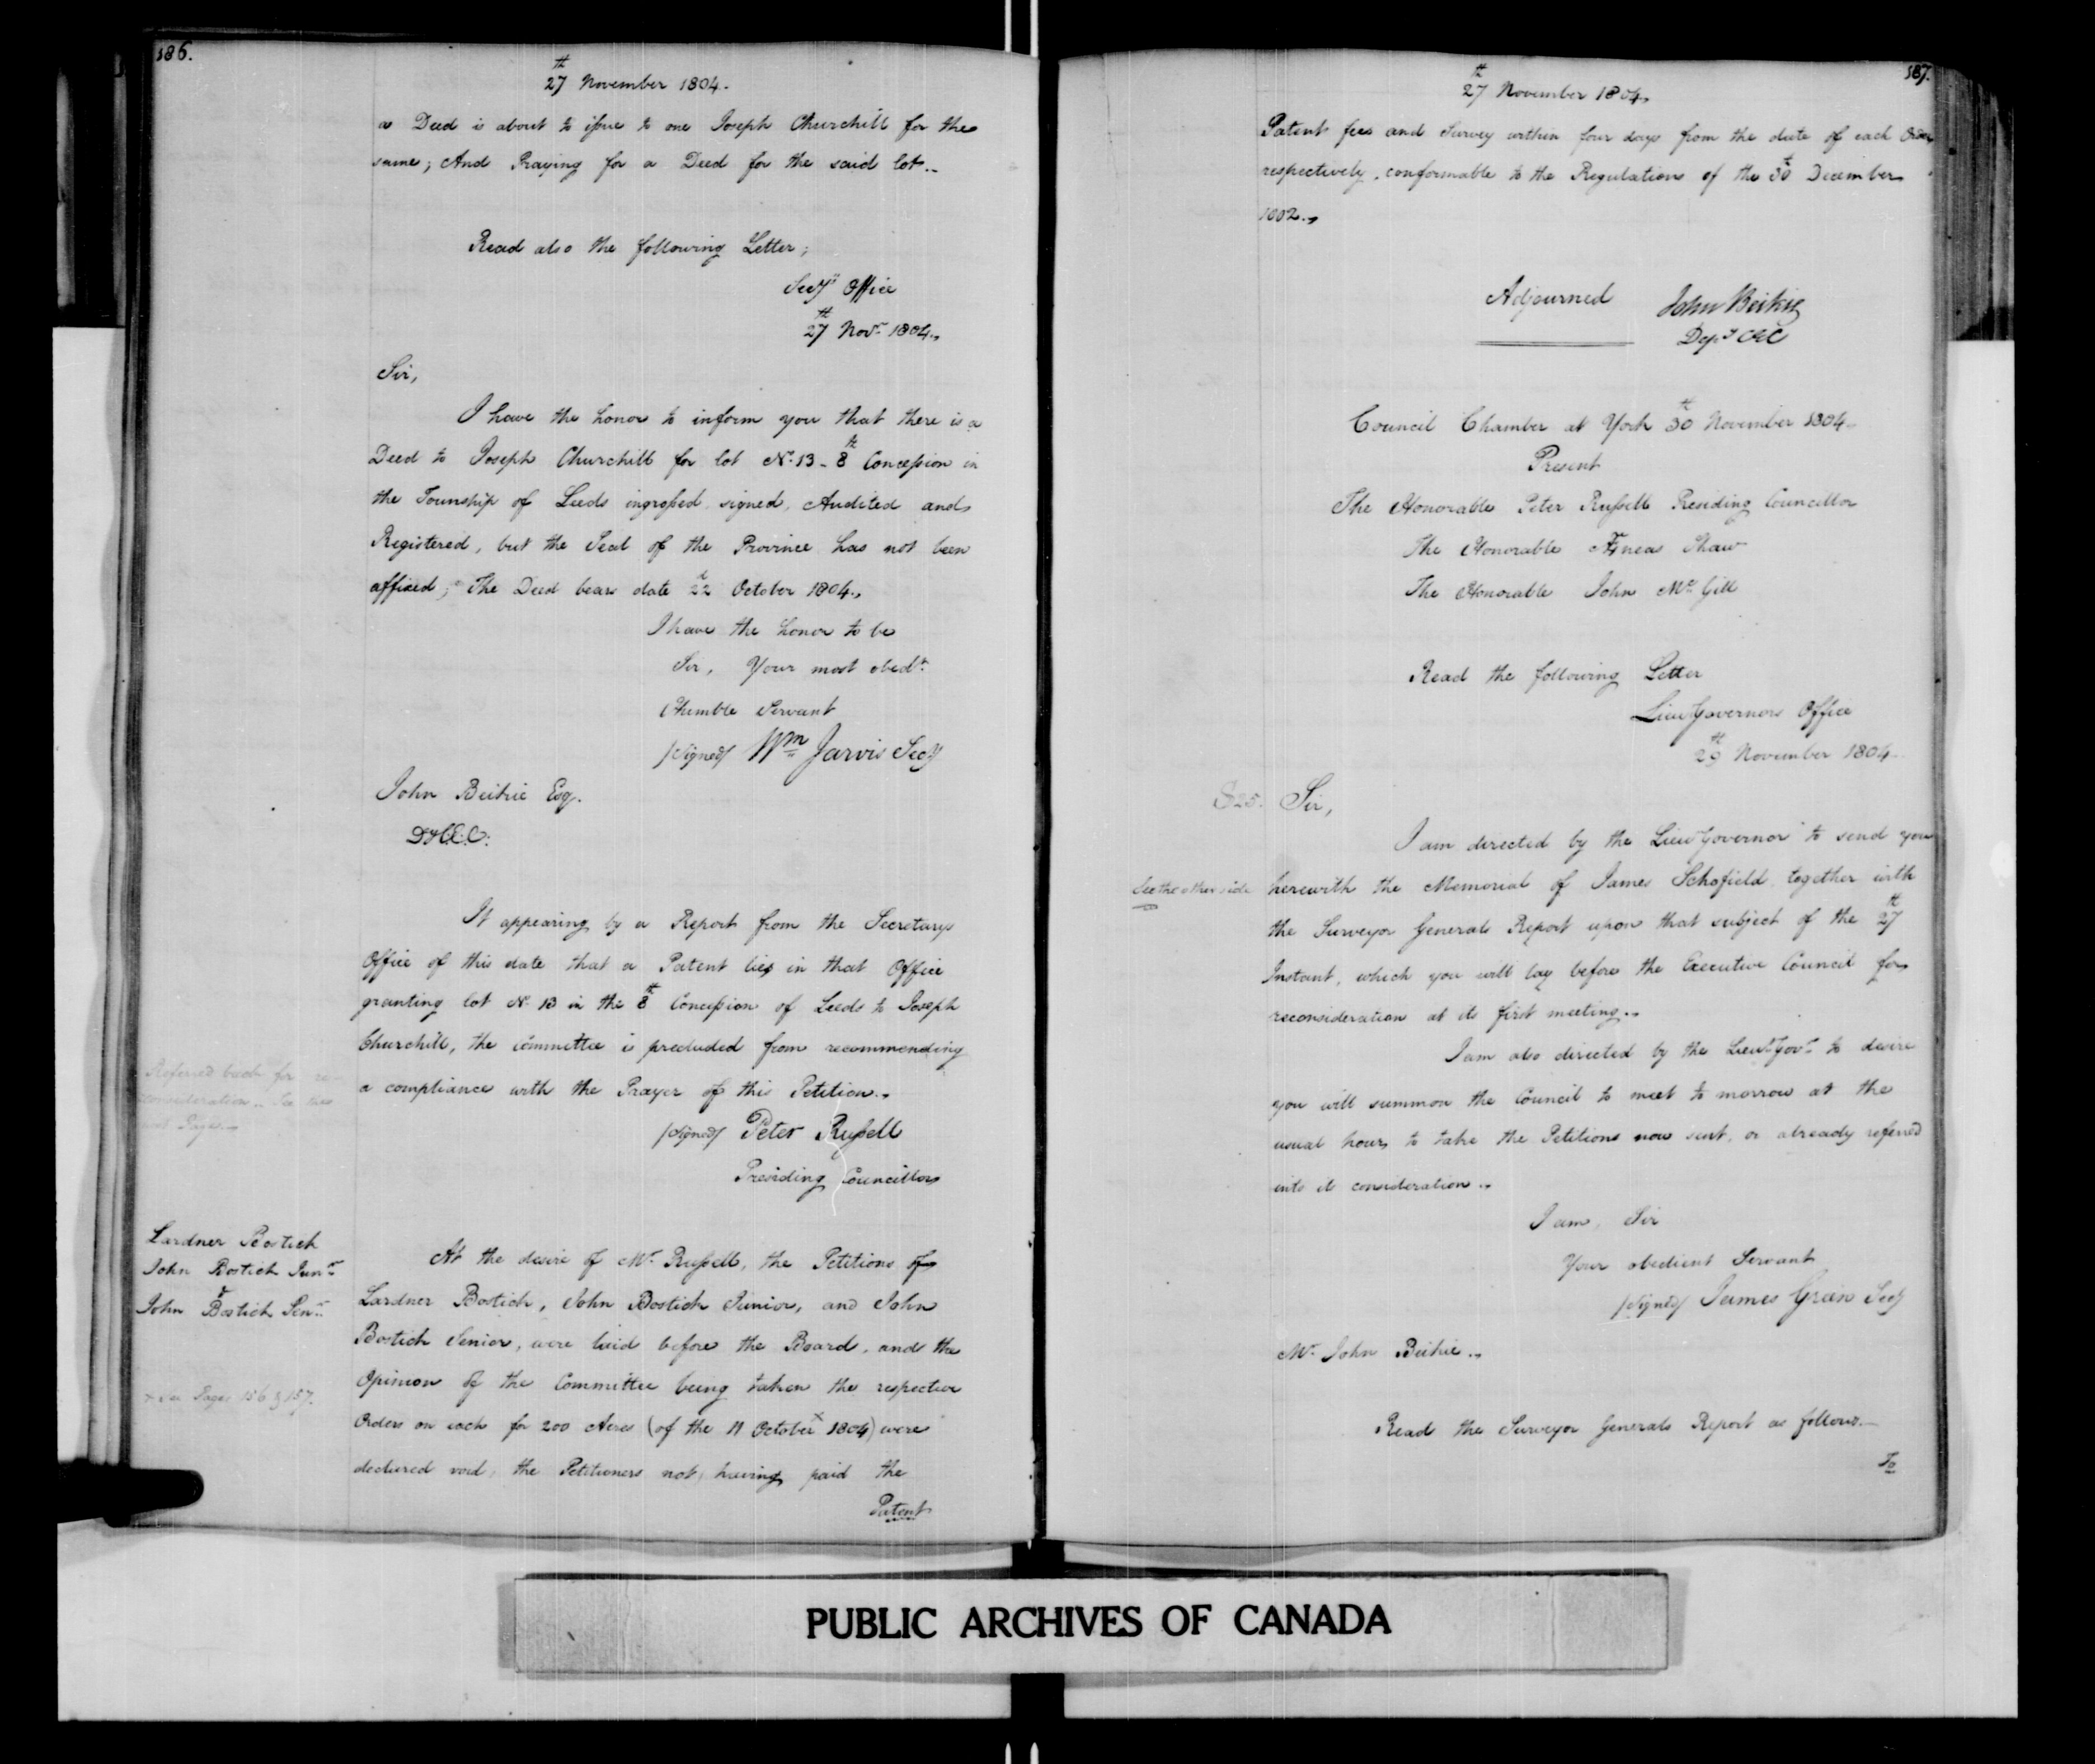 186.
27th November 1804.
a Deed is about to issue to one Joseph Churchill for the
same; And Praying for a Deed for the said lot..
Read also the following Letter;
Secy's Office
27th Novr 1804.,
Sir,
I have the honor to inform you that there is a
Deed to Joseph Churchill for lot No. 13 - 8th Concession in
the Township of Leeds ingrossed, signed, Audited and
Registered, but the Seal of the Province has not been
affixed; The Deed bears date 22d October 1804.,
I have the honor to be
Sir, Your most obedt.
Humble Servant
/signed/ Wm Jarvis Secy
John Beikie Esq.
D.y C.E.C.
It appearing by a Report from the Secretarys
Office of this date that a Patent lies in that Office
granting lot No. 13 in the 8th Concession of Leeds to Joseph
Churchill, the Committee is precluded from recommending
a compliance with the Prayer of this Petition.,
Referred back for re-
consideration.. See the
next Page..
/signed/ Peter Russell
Presiding Councillor
Lardner Bostick
John Bostick Junr
John Bostick Senr
At the desire of Mr. Russell, the Petitions of
Lardner Bostick, John Bostick Junior, and John
Bostick Senior, were laid before the Board, and the
Opinion of the Committee being taken the respective
x See Pages 156 & 157.
Orders on each for 200 Acres (of the 11 October x 1804) were
declared void, the Petitioners not, having paid the
Patent
187.
27th November 1804.,
Patent fees and Survey within four days from the date of each Order
respectively, conformable to the Regulations of the 30th December
1802.,
Adjourned John Beikie
Depy CEC
Council Chamber at York 30th November 1804.
Present
The Honorable Peter Russell Presiding Councillor
The Honorable Æneas Shaw
The Honorable John Mc.Gill
Read the following Letter
Lieut Governors Office
29th November 1804.
S25. Sir,
I am directed by the Lieut Governor to send you
See the other side herewith the Memorial of James Schofield together with
the Surveyor Generals Report upon that subject of the 27th
Instant, which you will lay before the Executive Council for
reconsideration at its first meeting..
I am also directed by the Lieut. Govr. to desire
you will summon the Council to meet to morrow at the
usual hour, to take the Petitions now sent, or already referred
into its consideration..
I am, Sir
Your obedient Servant
/signed/ James Green Secy
Mr. John Beikie..
Read the Surveyor Generals Report as follows.—
To
PUBLIC ARCHIVES OF CANADA